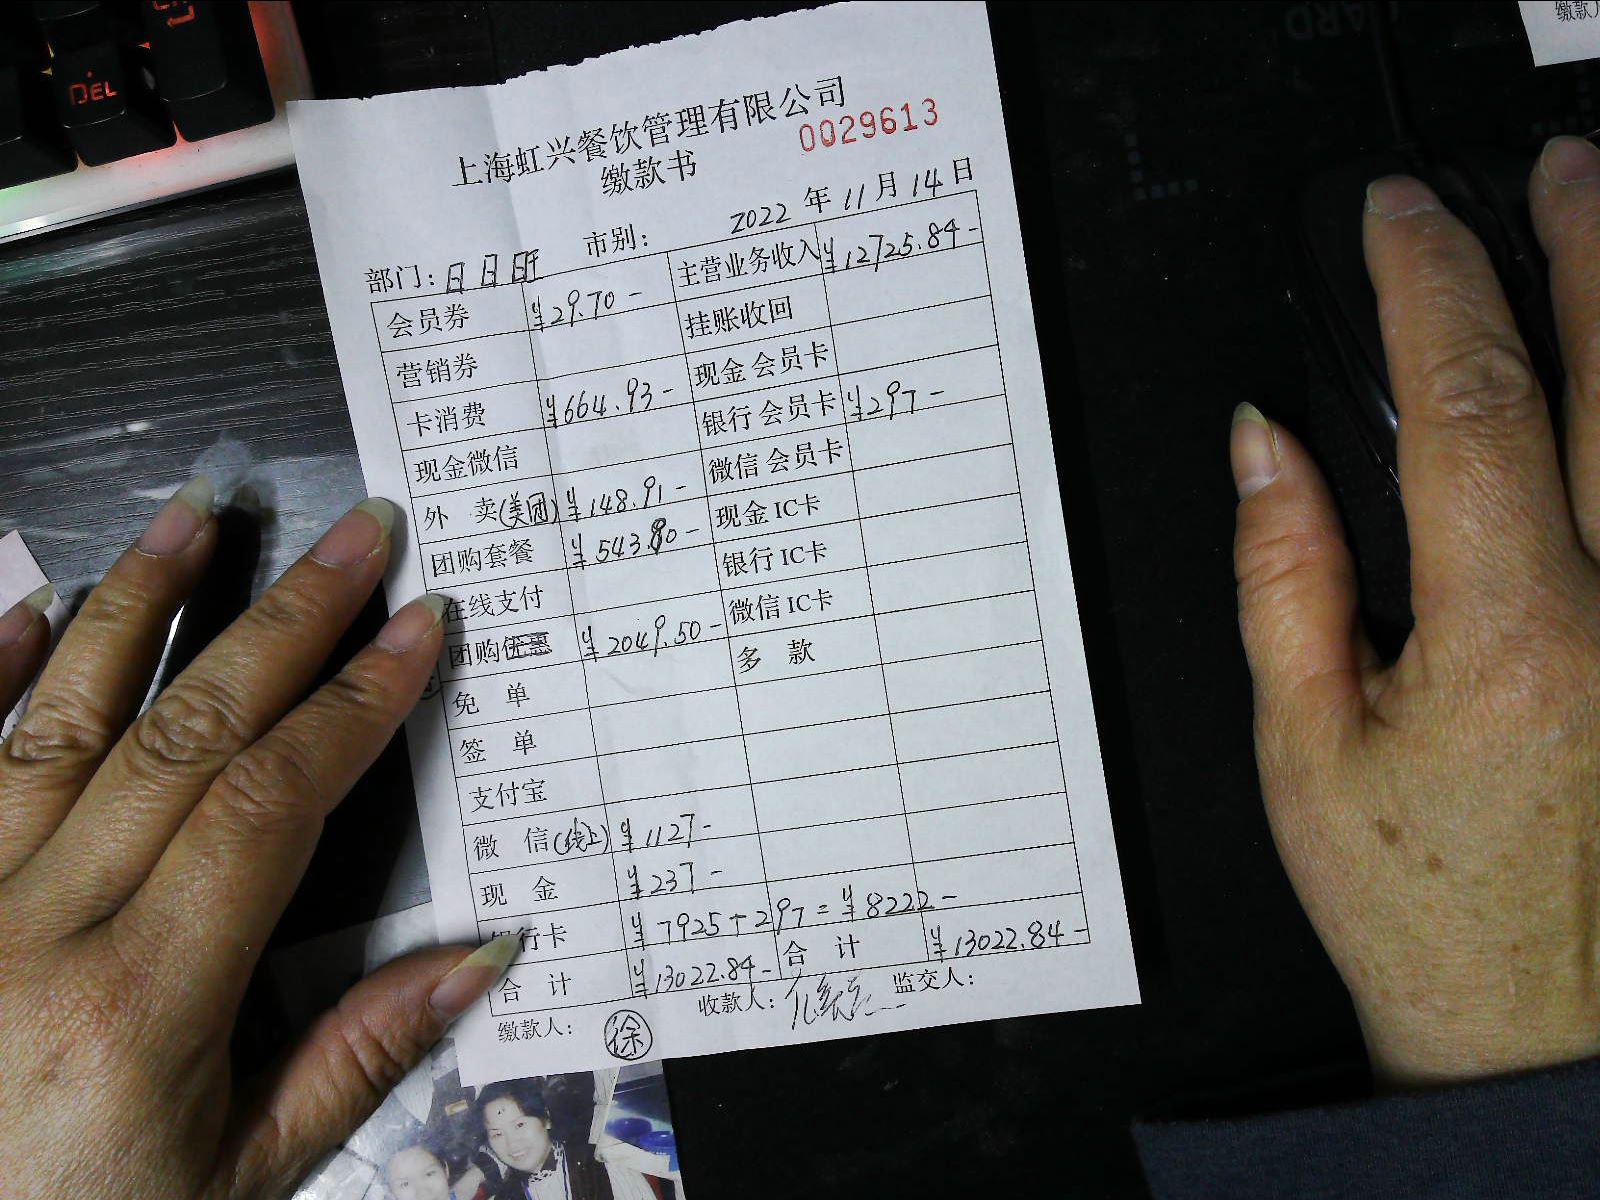 DEL
缴款
上海虹兴餐饮管理有限公司
0029613
缴款书
部门：日日昕 市别： 2022 年 11 月 14 日
会员券 ¥29.70- 主营业务收入 ¥12725.84-
营销券 挂账收回
卡消费 ¥664.93- 现金会员卡
现金微信 银行会员卡 ¥297-
外 卖(美团) ¥148.91- 微信会员卡
团购套餐 ¥543.80- 现金IC卡
在线支付 银行IC卡
团购优惠 ¥2049.50- 微信IC卡
免 单 多 款
签 单
支付宝
微 信(线上) ¥1127-
现 金 ¥237-
银行卡 ¥7925+297=¥8222-
合 计 ¥13022.84- 合 计 ¥13022.84-
缴款人： 徐 收款人： 监交人：